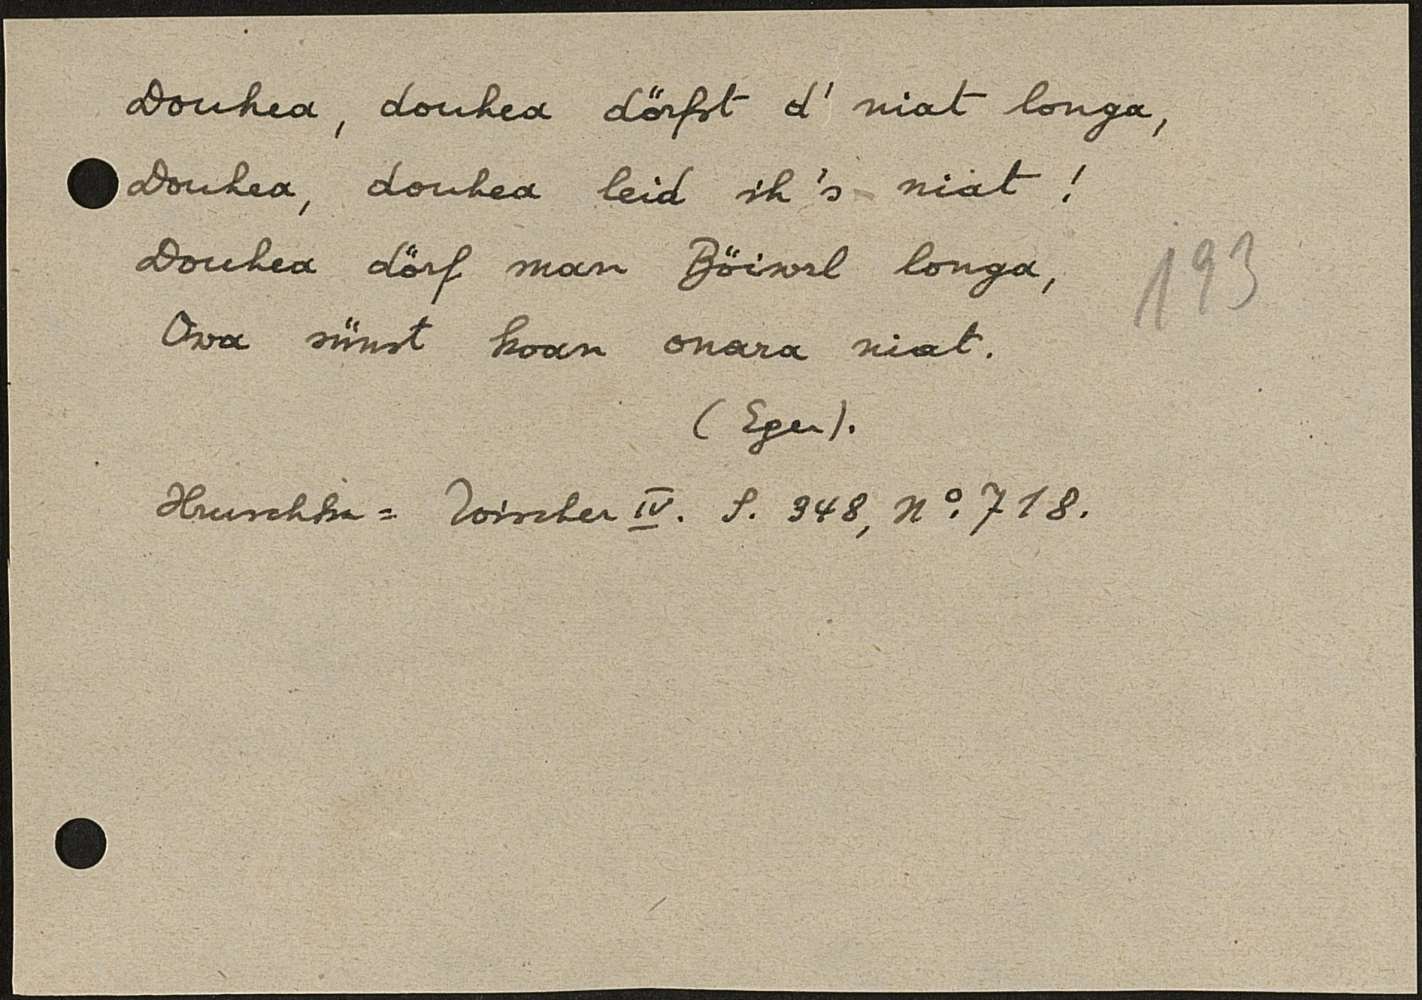 Douhea, douhea dörfst d' niat longa,
Douhea, douhea leid ih's niat!
Douhea dörf man Böiwrl longa,
193
Owa sünst koan onara niat.
(Eger).
Hruschka = Toischer IV. S. 348, No. 718.